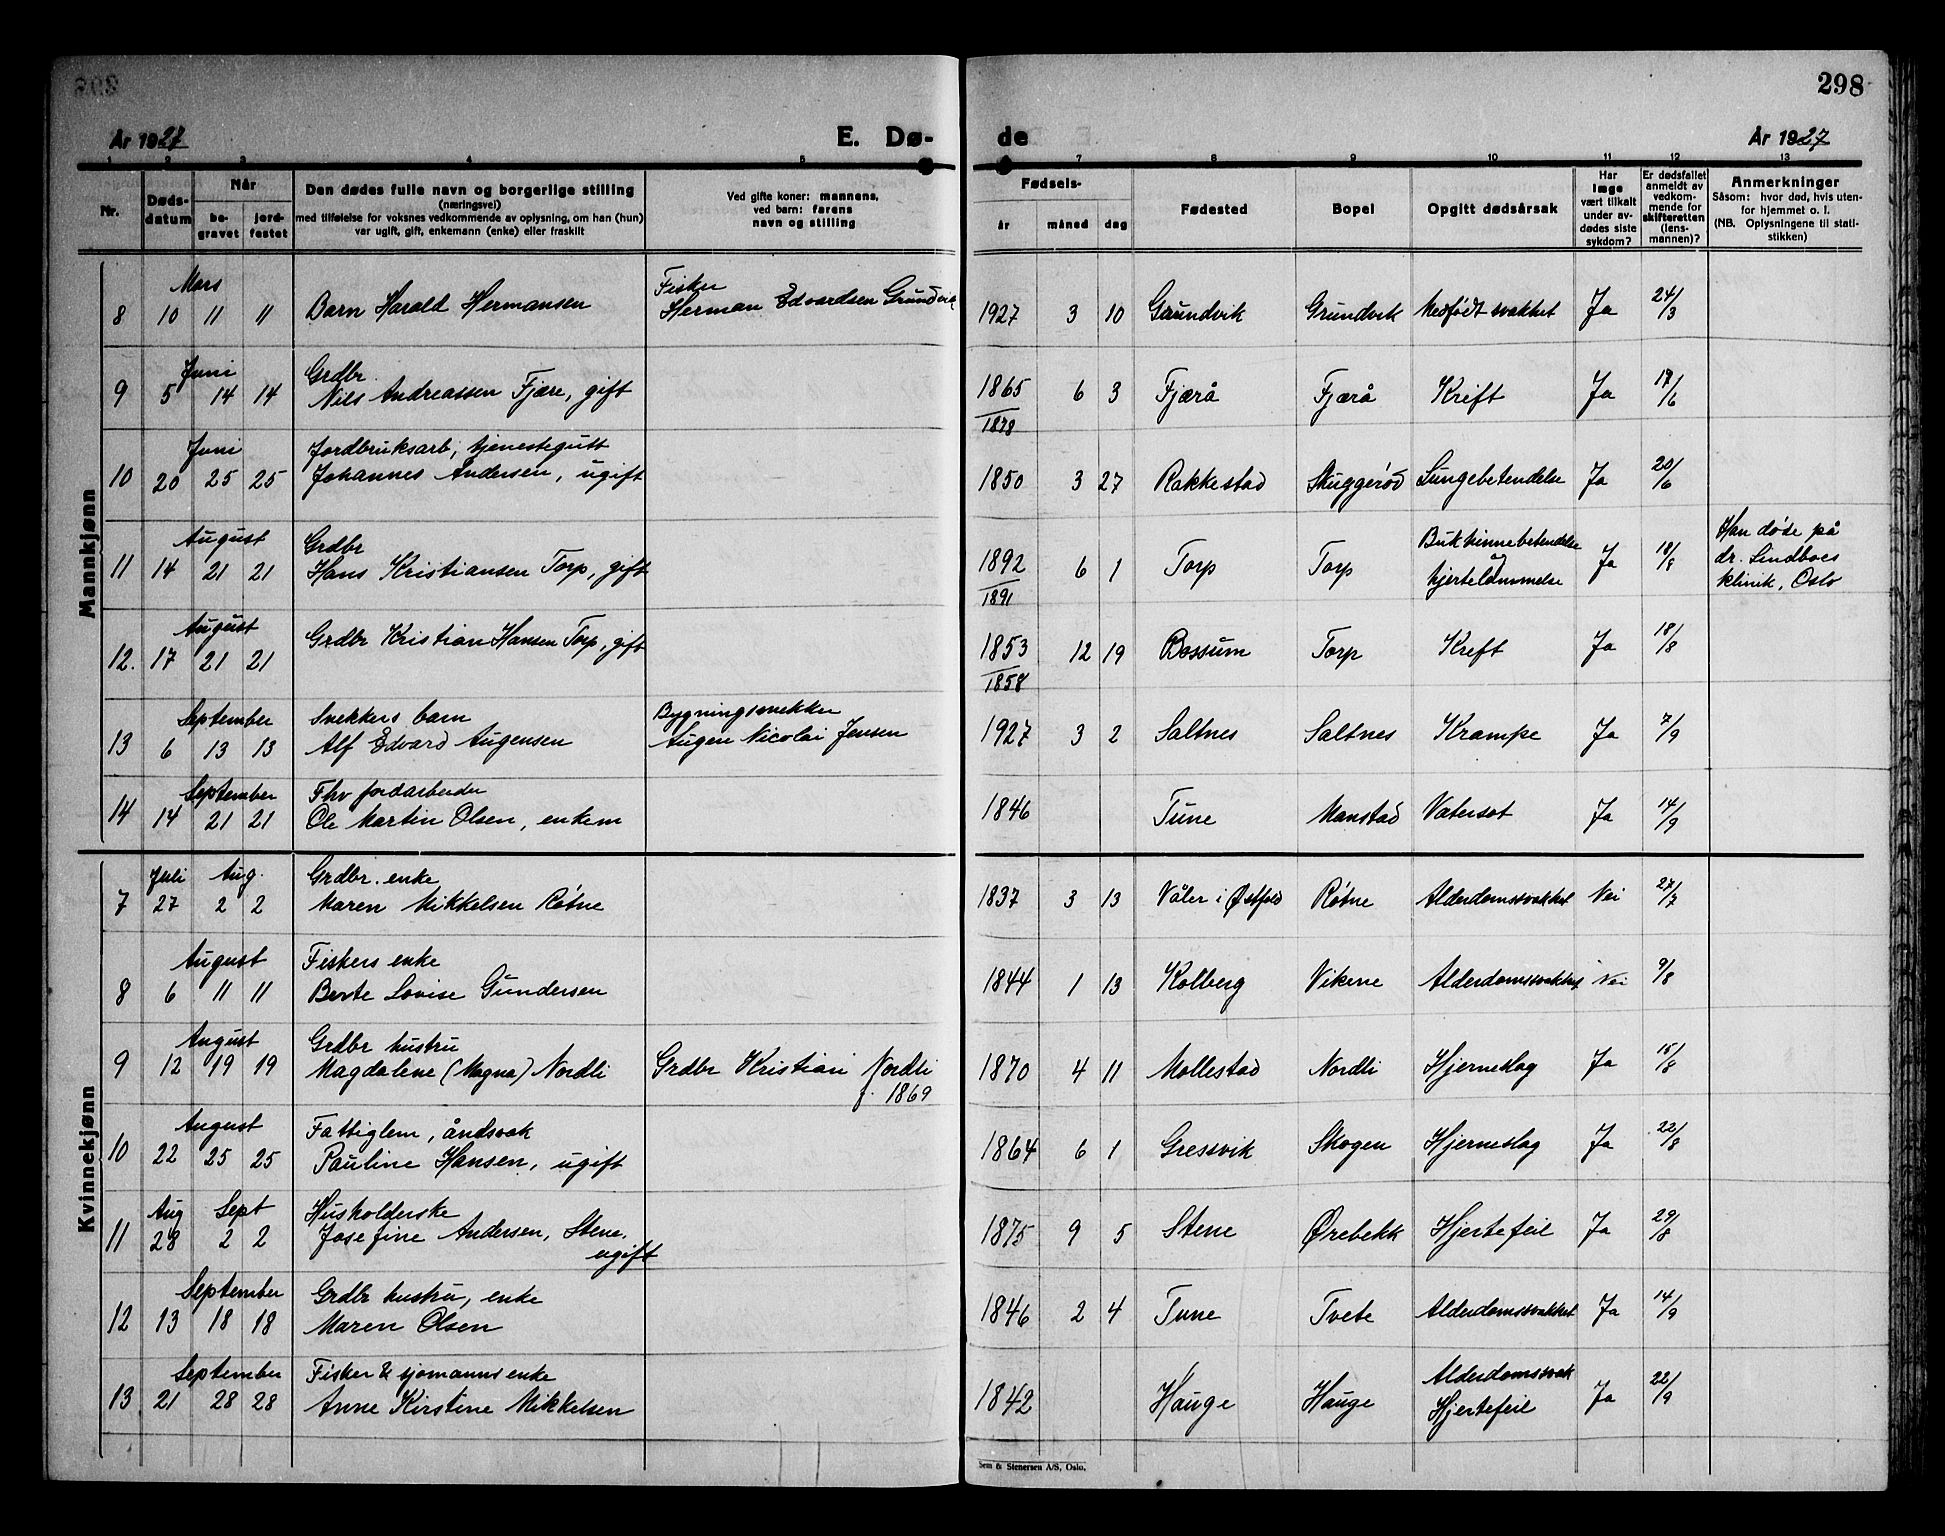 298
År 1927 E. Dø- de År 1927
1 2 3 4 5 7 8 9 10 11 12 13
Nr.
Døds-
datum
Når
be-
gravet
jord-
festet
Den dødes fulle navn og borgerlige stilling
(næringsvei)
med tilføielse for voksnes vedkommende av oplysning, om han (hun)
var ugift, gift, enkemann (enke) eller fraskilt
Ved gifte koner: mannens,
ved barn: farens
navn og stilling
Fødsels-
år måned dag
Fødested
Bopel
Opgitt dødsårsak
Har
læge
vært tilkalt
under av-
dødes siste
sykdom?
Er dødsfallet
anmeldt av
vedkom-
mende for
skifteretten
(lens-
mannen)?
Anmerkninger
Såsom: hvor død, hvis uten-
for hjemmet o. l.
(NB. Oplysningene til stati-
stikken)
Mannkjønn
Mars Fisker
8 10 11 11 Barn Harald Hermansen Herman Edvardsen Grundvik 1927 3 10 Grundvik Grundvik Medfødt svakhet Ja 24/3
Juni Grdbr.
9 5 14 14 Nils Andreassen Fjære, gift 1865 6 3 Fjærå Fjærå Kreft Ja 17/6
1878
Juni Jordbruksarb, tjenestegutt
10 20 25 25 Johannes Andersen, ugift 1850 3 27 Rakkestad Skuggerød Lungebetendelse Ja 20/6
August Grdbr Bukhinnebetendelse Han døde på
11 14 21 21 Hans Kristiansen Torp, gift 1892 6 1 Torp Torp og Ja 18/8 dr. Lindboes
hjertelammelse klinik, Oslo
1891
August
12. 17 21 21 Grdbr Kristian Hansen Torp, gift 1853 12 19 Bossum Torp Kreft Ja 18/8
1858
September Snekkers barn Bygningssnekker
13 6 13 13 Alf Edvard Augensen Augen Nicolai Jensen 1927 3 2 Saltnes Saltnes Krampe Ja 7/9
September Fhv jordarbeider
14 14 21 21 Ole Martin Olsen, enkem 1846 Tune Manstad Vatersot Ja 14/9
Kvinnekjønn
Juli Aug. Grdbr. enke
7 27 2 2 Maren Mikkelsen Røtne 1837 3 13 Våler i Østfold Røtne Alderdomssvakhet Nei 27/7
August Fiskers enke
8 6 11 11 Berte Lovise Gundersen 1844 1 13 Kolberg Vikene Alderdomssvakhet Nei 9/8
August Grdbr hustru
9 12 19 19 Magdalene (Magna) Nordli Grdbr Kristian Nordli 1870 4 11 Mollestad Nordli Hjerneslag Ja 15/8
f. 1869
August Fattiglem, åndsvak
10 22 25 25 Pauline Hansen, ugift 1864 6 1 Gressvik Skogen Hjerneslag Ja 22/8
Aug Sept Husholderske
11 28 2 2 Josefine Andersen, Stene, 1875 9 5 Stene Ørebekk Hjertefeil Ja 29/8
ugift
September Grdbr hustru, enke
12 13 18 18 Maren Olsen 1846 2 4 Tune Tvete Alderdomssvakhet Ja 14/9
September Fisker & sjømanns enke Alderdomssvak
13 21 28 28 Anne Kirstine Mikkelsen 1842 Hauge Hauge Hjertefeil Ja 22/9
Sem & Stenersen A/S, Oslo.